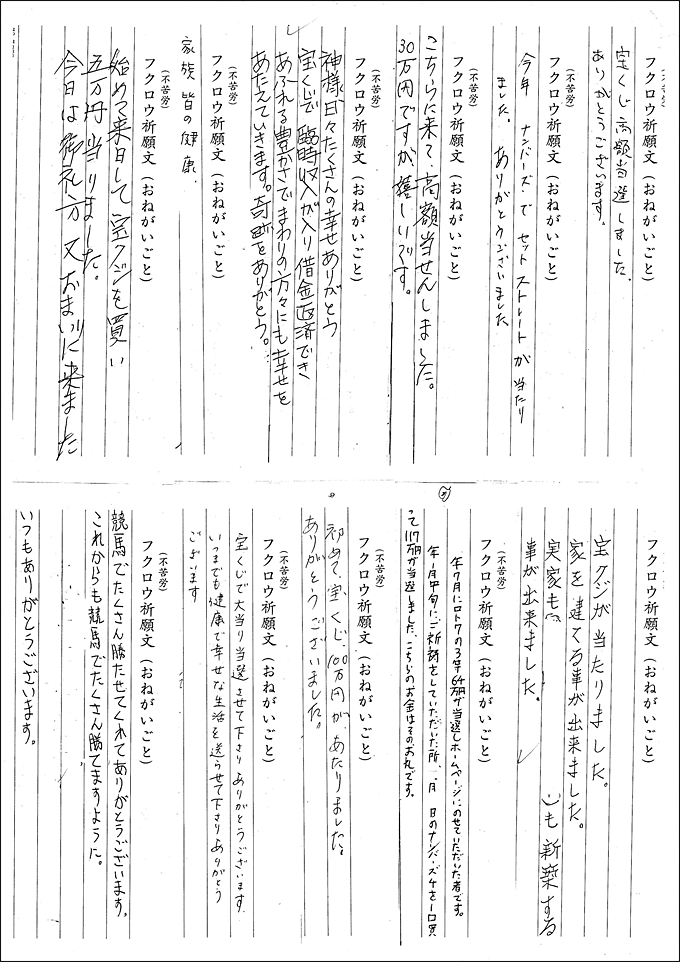 (不苦労)
フクロウ祈願文(おねがいごと)
宝くじ高額当選しました。
ありがとうございます。
(不苦労)
フクロウ祈願文(おねがいごと)
今年 ナンバーズで セットストレートが当たり
ました。ありがとうございました
(不苦労)
フクロウ祈願文(おねがいごと)
こちらに来て、高額当せんしました。
30万円ですが、嬉しいです。
(不苦労)
フクロウ祈願文(おねがいごと)
神様日々たくさんの幸せありがとう
宝くじで臨時収入が入り借金返済でき
あふれる豊かさでまわりの方々にも幸せを
あたえていきます。奇跡をありがとう。
(不苦労)
フクロウ祈願文(おねがいごと)
家族皆の健康
(不苦労)
フクロウ祈願文(おねがいごと)
始めて来日して宝クジを買い
五万円当りました。
今日は御礼方又おまいりに来ました
フクロウ祈願文(おねがいごと)
宝クジが当たりました。
家を建てる事が出来ました。
実家も も新築する
事が出来ました。
(不苦労)
フクロウ祈願文(おねがいごと)
年7月にロト7の3等64万円が当選しホームページにのせていただいた者です。
年1月中旬にご祈祷をしていただいた所、 月 日のナンバーズ4を一口買
って117万円が当選しました。こちらのお金はそのお礼です。
(不苦労)
フクロウ祈願文(おねがいごと)
初めて、宝くじ、100万円があたりました。
ありがとうございました。
(不苦労)
フクロウ祈願文(おねがいごと)
宝くじで大当り当選させて下さりありがとうございます
いつまでも健康で幸せな生活を送らせて下さりありがとう
ございます
(不苦労)
フクロウ祈願文(おねがいごと)
競馬でたくさん勝たせてくれてありがとうございます。
これからも競馬でたくさん勝てますように。
いつもありがとうございます。